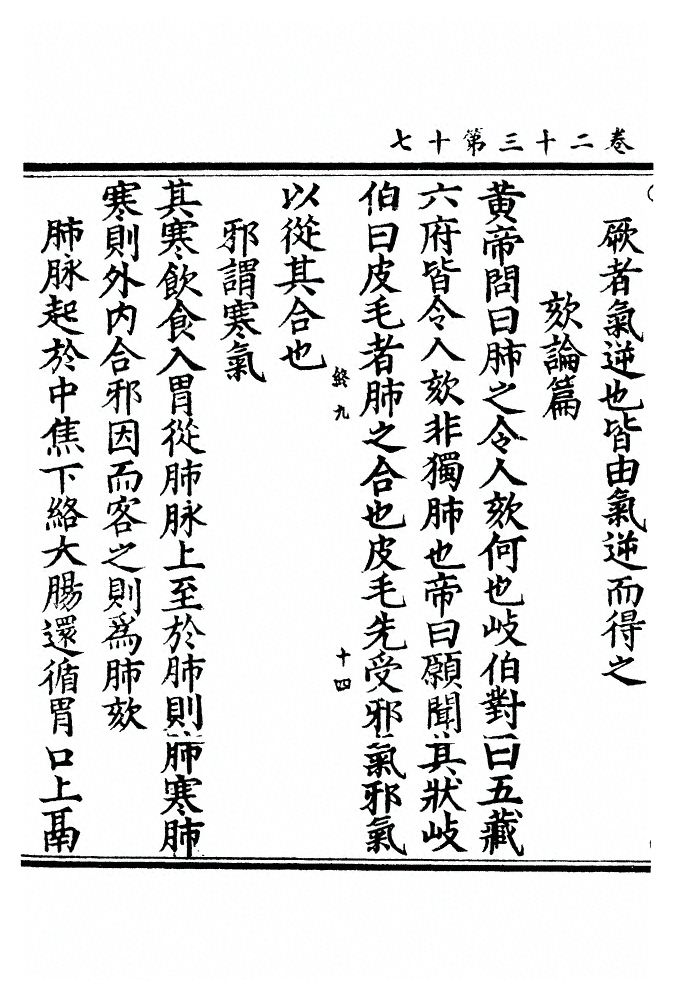 卷二十三第十七
厥者氣逆也皆由氣逆而得之
欬論篇
黃帝問曰肺之令人欬何也岐伯對曰五藏
六府皆令人欬非獨肺也帝曰願聞其狀岐
伯曰皮毛者肺之合也皮毛先受邪氣邪氣
終九
十四
以從其合也
邪謂寒氣
其寒飲食入胃從肺脉上至於肺則肺寒肺
寒則外內合邪因而客之則爲肺欬
肺脉起於中焦下絡大腸還循胃口上鬲